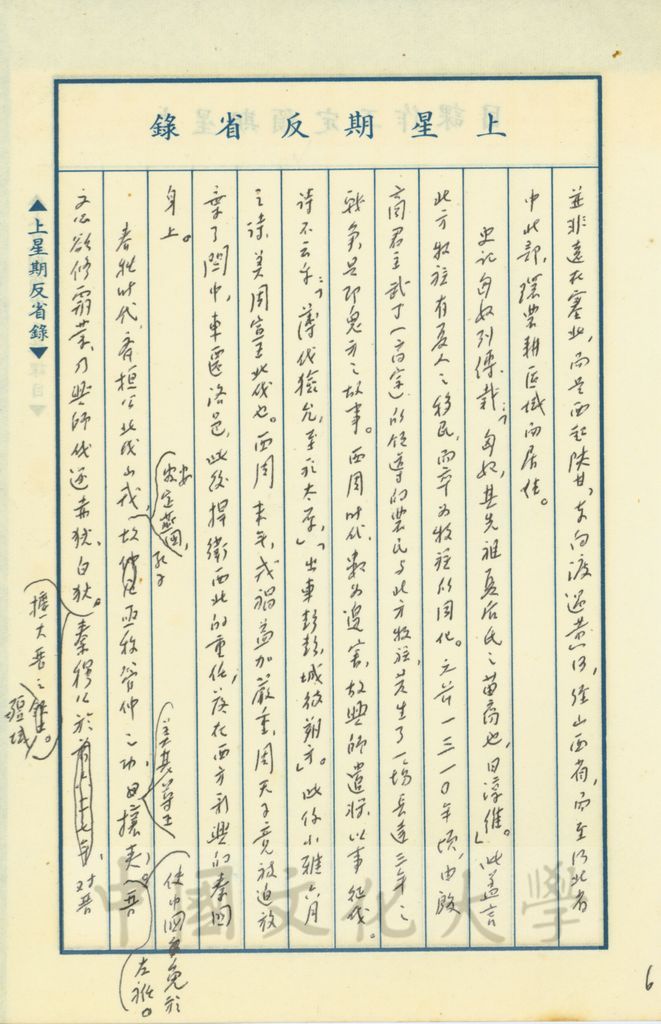 上星期反省錄
並非遠在塞北，而是西起陝甘，東向渡過黃河，經山西省，而至河北省
中北部，環農耕區域而居住。
史記匈奴列傳載：「匈奴，其先祖夏后氏之苗裔也，曰淳維。」此蓋言
北方牧族有夏人之移民，而卒為牧族所同化。元前一三一〇年頃，由殷
商君主武丁（高宗）所領導的農民與北方牧族，發生了一場長達三年之
戰爭，是即鬼方之故事。西周時代，數為邊害，故興師遣將，以事征伐。
詩不云乎：「薄伐獫允，至於太原」，「出車彭彭，城彼朔方」。此係小雅六月
之詩，美周宣王北伐也。西周末年，戎禍益加嚴重，周天子竟被迫放
棄了關中，東遷洛邑，此後捍衛西北的重任，落在西方新興的秦國
身上。
春秋時代，齊桓公北伐山戎，安定燕國，孔子
故亟稱管仲之功，美其尊王
攘夷，使中國免於
左袵。晉
文公欲修霸業，乃興師伐逐赤狄、白狄。秦穆公於
，對晉
擴大晉之
疆域
▲上星期反省錄▼
中國文化大學
6